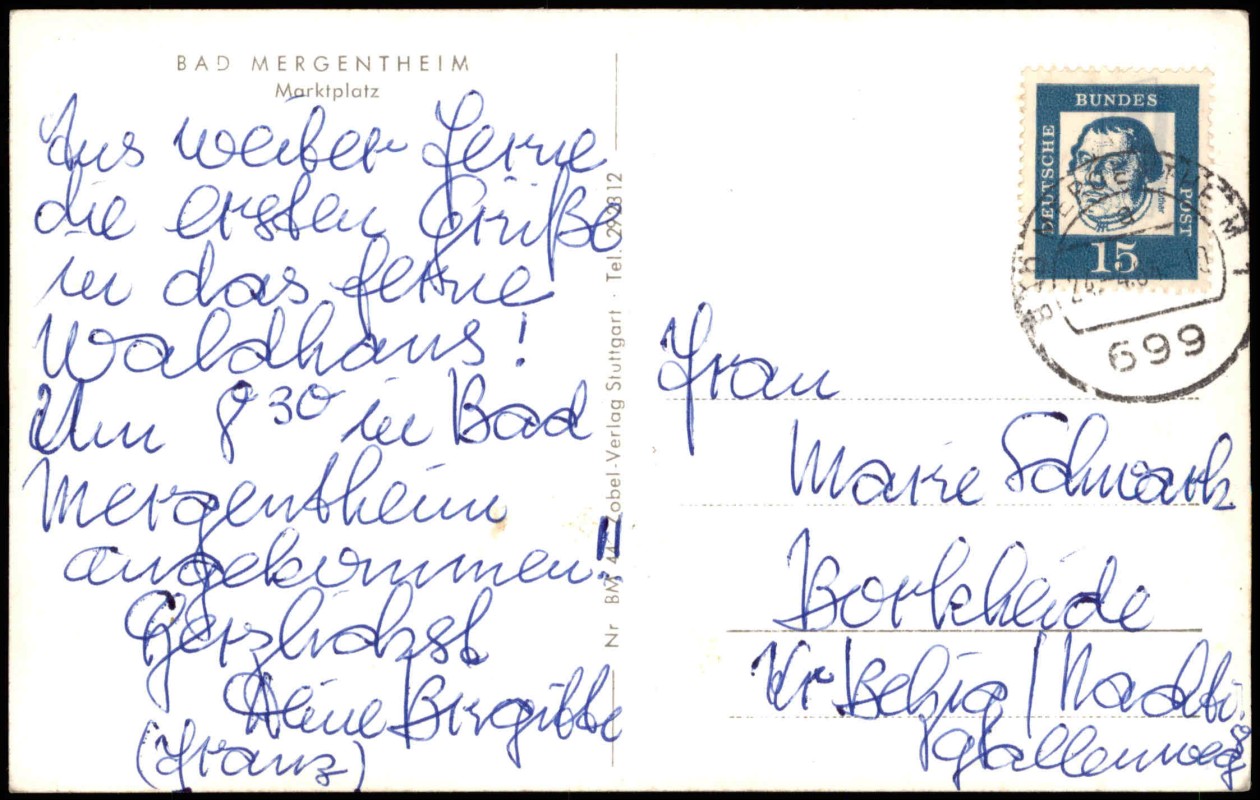 BAD MERGENTHEIM
Marktplatz
Aus weiter Ferne
die ersten Grüße
in das ferne
Waldhaus!
Um 8 30 in Bad
Mergentheim
angekommen!
Herzlichst
Birgitte
(Franz)
Nr BM 44 Zobel-Verlag Stuttgart · Tel. 29 28 12
DEUTSCHE BUNDES POST
15
BAD MERGENTHEIM 1
a
699
Frau
Marie Schwark
Borkheide
Kr Belzig / Nachti
gallenweg